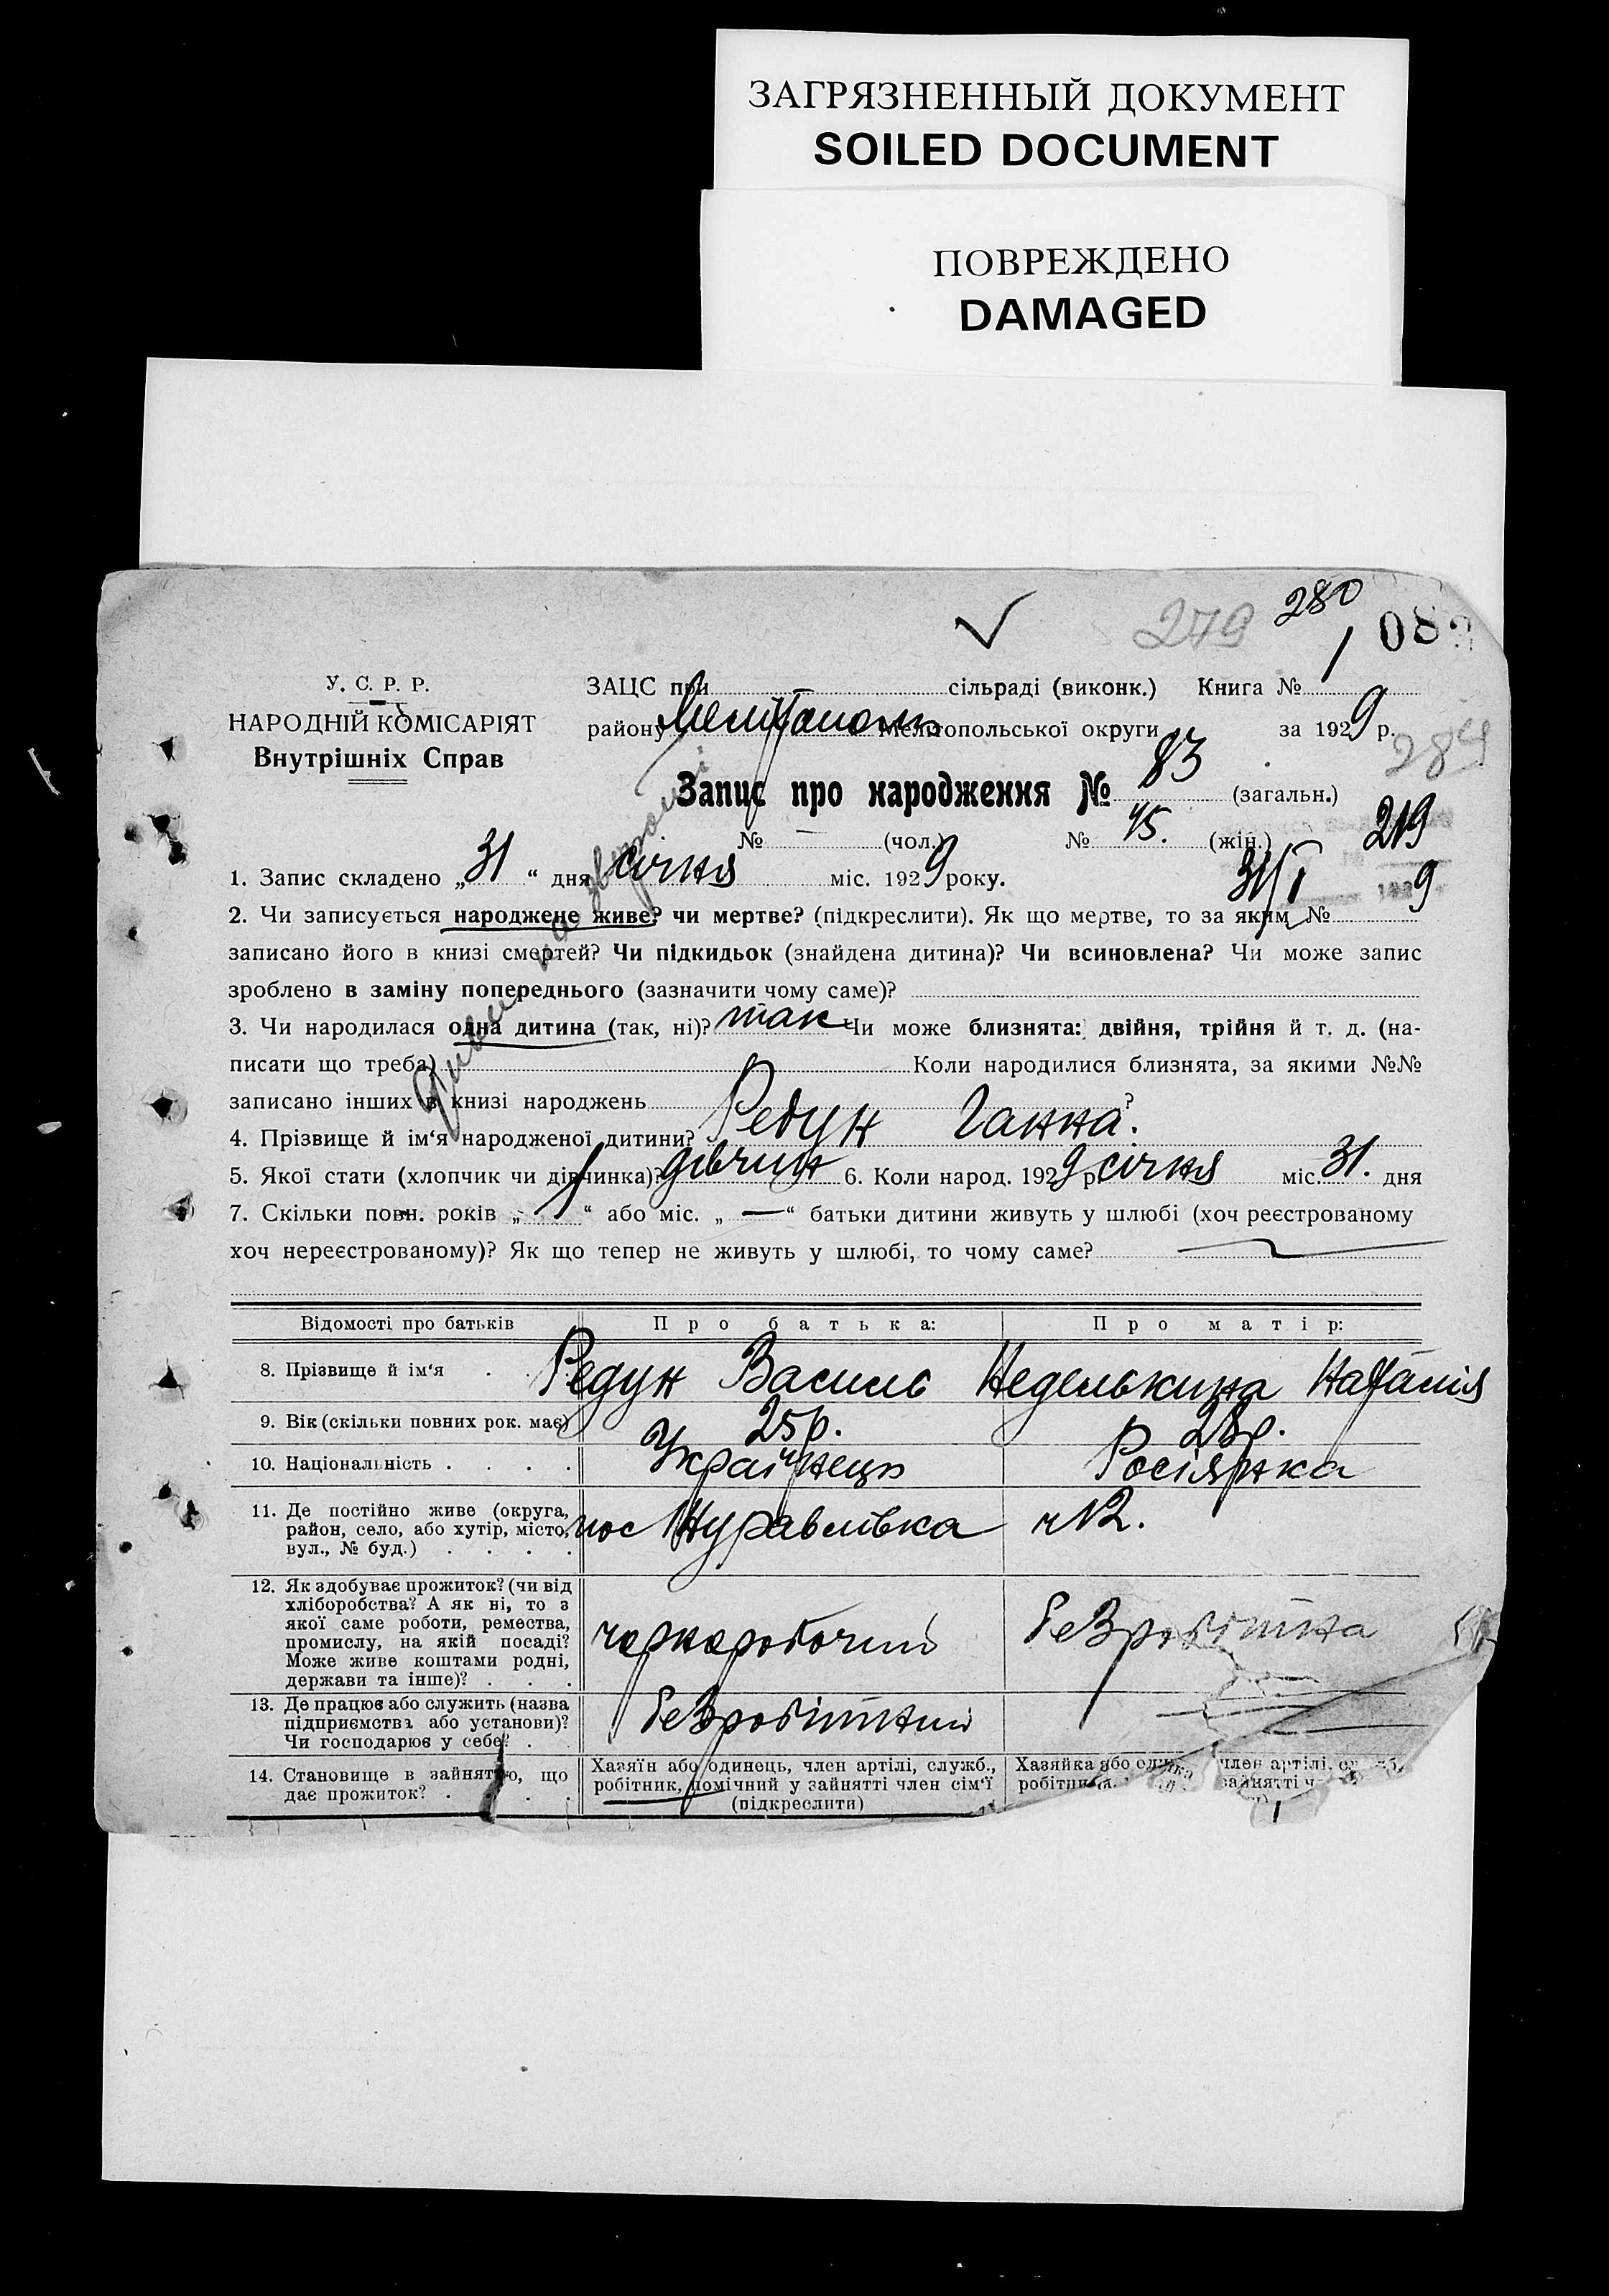 ЗАГРЯЗНЕННЫЙ ДОКУМЕНТ
SOILED DOCUMENT
ПОВРЕЖДЕНО
DAMAGED
279 280 1 08
У. С. Р. Р.
НАРОДНІЙ КОМІСАРІЯТ
Внутрішніх Справ
ЗАЦС при сільраді (виконк.) Книга №
району Мелітополь Мелітопольської округи за 1929 р.
284
Запис про народження № 83 (загальн.)
№ — (чол.) № 45. (жін.) 219
1. Запис складено „31“ дня січня міс. 1929 року. 31/I 9
2. Чи записується народжене живе? чи мертве? (підкреслити). Як що мертве, то за яким №
записано його в книзі смертей? Чи підкидьок (знайдена дитина)? Чи всиновлена? Чи може запис
зроблено в заміну попереднього (зазначити чому саме)?
3. Чи народилася одна дитина (так, ні)? так Чи може близнята: двійня, трійня й т. д. (на-
писати що треба) Коли народилися близнята, за якими №№
записано інших в книзі народжень ?
4. Прізвище й ім‘я народженої дитини? Редун Ганна.
5. Якої стати (хлопчик чи дівчинка)? дівчин 6. Коли народ. 1929 р. січня міс. 31. дня
7. Скільки повн. років „1“ або міс. „—“ батьки дитини живуть у шлюбі (хоч реєстрованому
хоч нереєстрованому)? Як що тепер не живуть у шлюбі, то чому саме?
Відомості про батьків Про батька: Про матір:
8. Прізвище й ім‘я Редун Василь Неделькина Наталія
9. Вік (скільки повних рок. має) 25 р. 28 р.
10. Національність Українець Росіянка
11. Де постійно живе (округа,
район, село, або хутір, місто,
вул., № буд.)
пос Журавлівка ч 12.
12. Як здобуває прожиток? (чи від
хліборобства? А як ні, то з
якої саме роботи, ремества,
промислу, на якій посаді?
Може живе коштами родні,
держави та інше)?
чорноробочий безробітна
13. Де працює або служить (назва
підприємства або установи)?
Чи господарює у себе?
безробітний
14. Становище в зайняттю, що
дає прожиток?
Хазяїн або одинець, член артілі, служб.,
робітник, помічний у зайнятті член сім‘ї
(підкреслити)
Хазяйка або член артілі,
зайнятті
Дивись на звороті